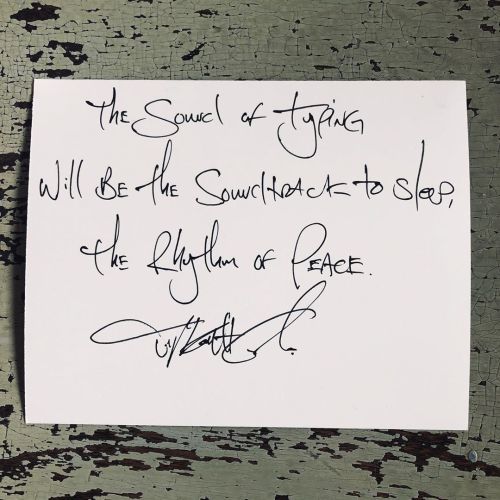 The Sound of typing
Will BE the Soundtrack to sleep,
the Rhythm of PEACE.